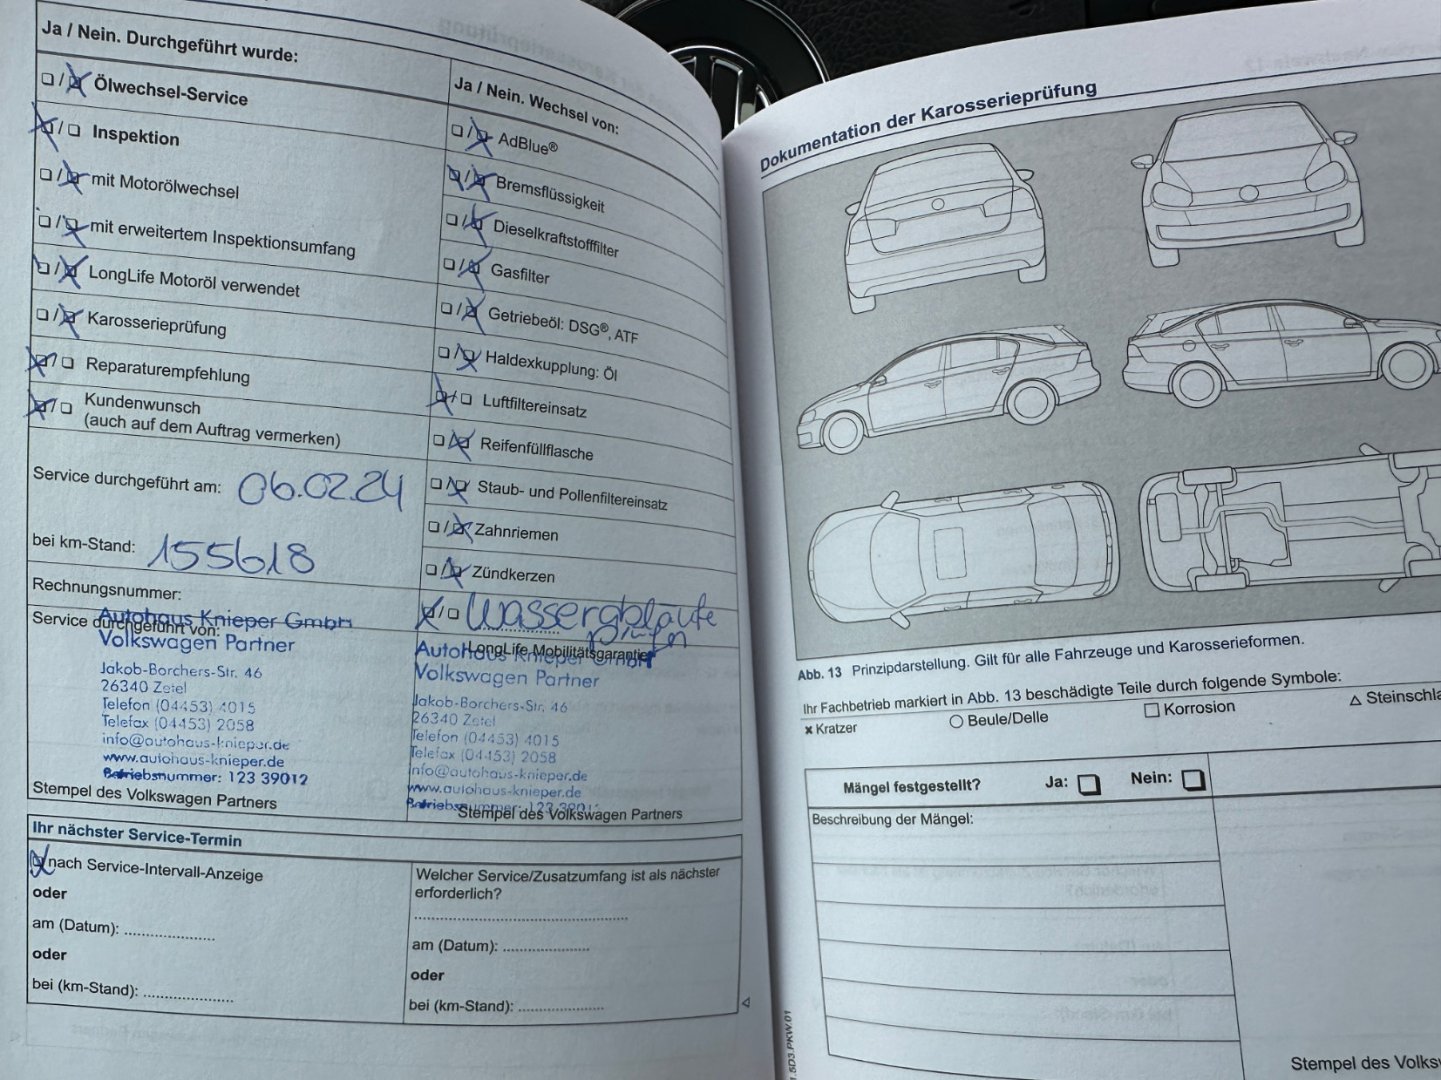 Ja / Nein. Durchgeführt wurde:
❏ / ❏ Ölwechsel-Service
❏ / ❏ Inspektion
❏ / ❏ mit Motorölwechsel
❏ / ❏ mit erweitertem Inspektionsumfang
❏ / ❏ LongLife Motoröl verwendet
❏ / ❏ Karosserieprüfung
❏ / ❏ Reparaturempfehlung
❏ / ❏ Kundenwunsch
(auch auf dem Auftrag vermerken)
Service durchgeführt am: 06.02.24
bei km-Stand: 155618
Rechnungsnummer:
Service durchgeführt von:
Autohaus Knieper GmbH
Volkswagen Partner
Jakob-Borchers-Str. 46
26340 Zetel
Telefon (04453) 4015
Telefax (04453) 2058
info@autohaus-knieper.de
www.autohaus-knieper.de
Betriebsnummer: 123 39012
Stempel des Volkswagen Partners
Ja / Nein. Wechsel von:
❏ / ❏ AdBlue®
❏ / ❏ Bremsflüssigkeit
❏ / ❏ Dieselkraftstofffilter
❏ / ❏ Gasfilter
❏ / ❏ Getriebeöl: DSG®, ATF
❏ / ❏ Haldexkupplung: Öl
❏ / ❏ Luftfiltereinsatz
❏ / ❏ Reifenfüllflasche
❏ / ❏ Staub- und Pollenfiltereinsatz
❏ / ❏ Zahnriemen
❏ / ❏ Zündkerzen
❏ / ❏ Wasserabläufe
prüfen
LongLife Mobilitätsgarantie
Autohaus Knieper GmbH
Volkswagen Partner
Jakob-Borchers-Str. 46
26340 Zetel
Telefon (04453) 4015
Telefax (04453) 2058
info@autohaus-knieper.de
www.autohaus-knieper.de
Betriebsnummer: 123 3901
Stempel des Volkswagen Partners
Ihr nächster Service-Termin
❏ nach Service-Intervall-Anzeige
oder
am (Datum): ......................
oder
bei (km-Stand): ......................
Welcher Service/Zusatzumfang ist als nächster
erforderlich?
......................................................
am (Datum): ......................
oder
bei (km-Stand): ......................
Dokumentation der Karosserieprüfung
Abb. 13 Prinzipdarstellung. Gilt für alle Fahrzeuge und Karosserieformen.
Ihr Fachbetrieb markiert in Abb. 13 beschädigte Teile durch folgende Symbole:
× Kratzer ○ Beule/Delle □ Korrosion △ Steinschla
Mängel festgestellt? Ja: ❏ Nein: ❏
Beschreibung der Mängel:
Stempel des Volksw
1.5D3.PKW.01